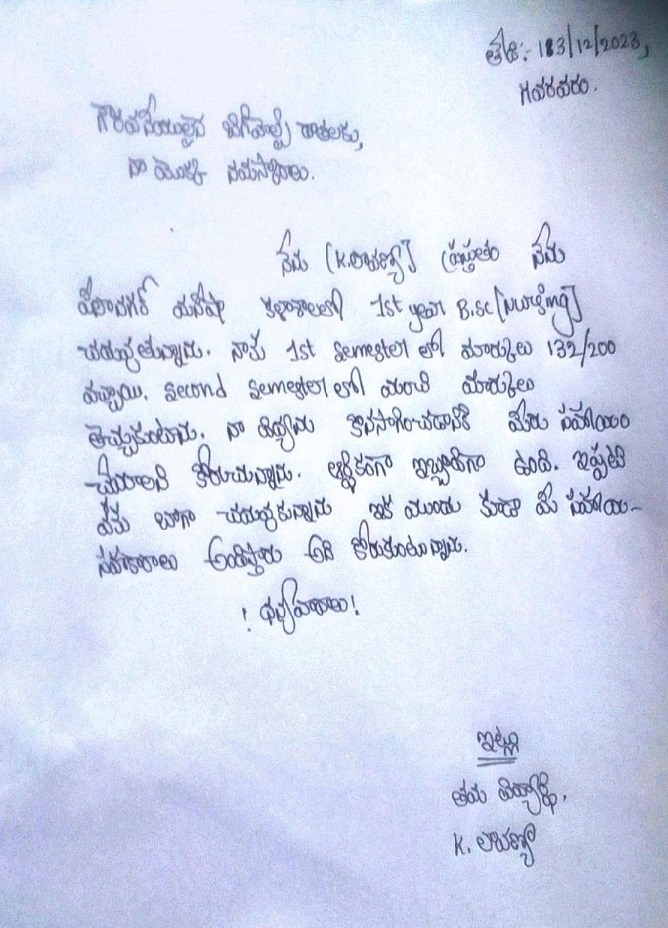 తేది:- 13/12/2023,
గవరవరం.
గౌరవనీయులైన
దాతలకు,
నా యొక్క నమస్కారాలు.
నేను [K.లావణ్య] ప్రస్తుతం నేను
కళాశాలలో 1st year B.sc [Nursing]
చదువుతున్నాను. నాకు 1st semester లో మార్కులు 132/200
వచ్చాయి. second semester లో మంచి మార్కులు
తెచ్చుకుంటాను. నా విద్యను కొనసాగించడానికి మీరు సహాయం
చేయాలని కోరుచున్నాను. ఆర్థికంగా ఇబ్బందిగా ఉంది. ఇప్పటి
బాగా చదువుకున్నాను ఇక ముందు కూడా మీ సహాయ-
సహకారాలు అందిస్తారు అని కోరుకుంటున్నాను.
! ధన్యవాదాలు!
ఇట్లు
తమ విద్యార్థి,
K. లావణ్య